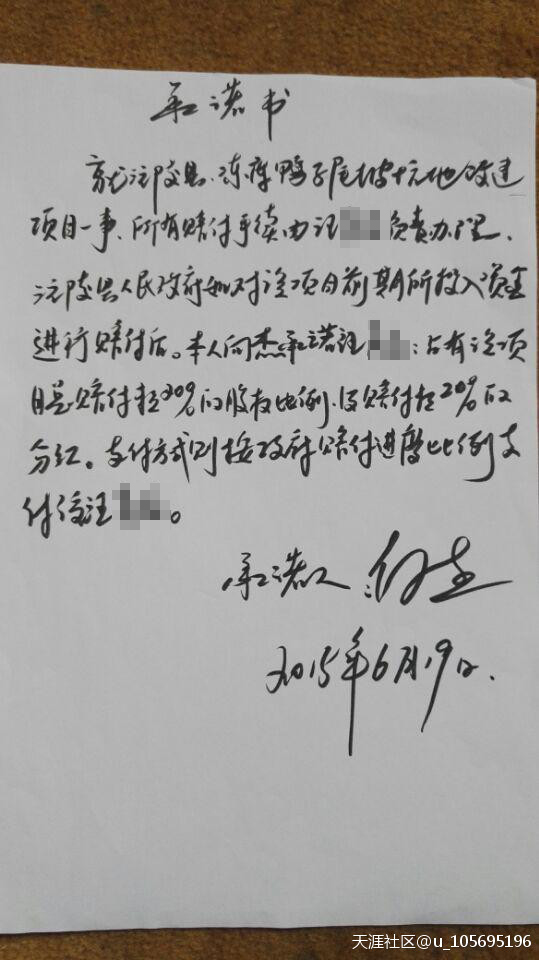 承诺书
就沅陵县凉水井鸭子尾棚户地改造
项目一事、所有赔付手续由汪负责办理、
沅陵县人民政府如对该项目前期所投入资金
进行赔付后。本人向杰承诺汪:占有该项
目总赔付款20%的股权比例.及赔付款20%的
分红。支付方式则按政府赔付进度比例支
付给汪。
承诺人:向杰
2015年6月19日.
天涯社区@u_105695196